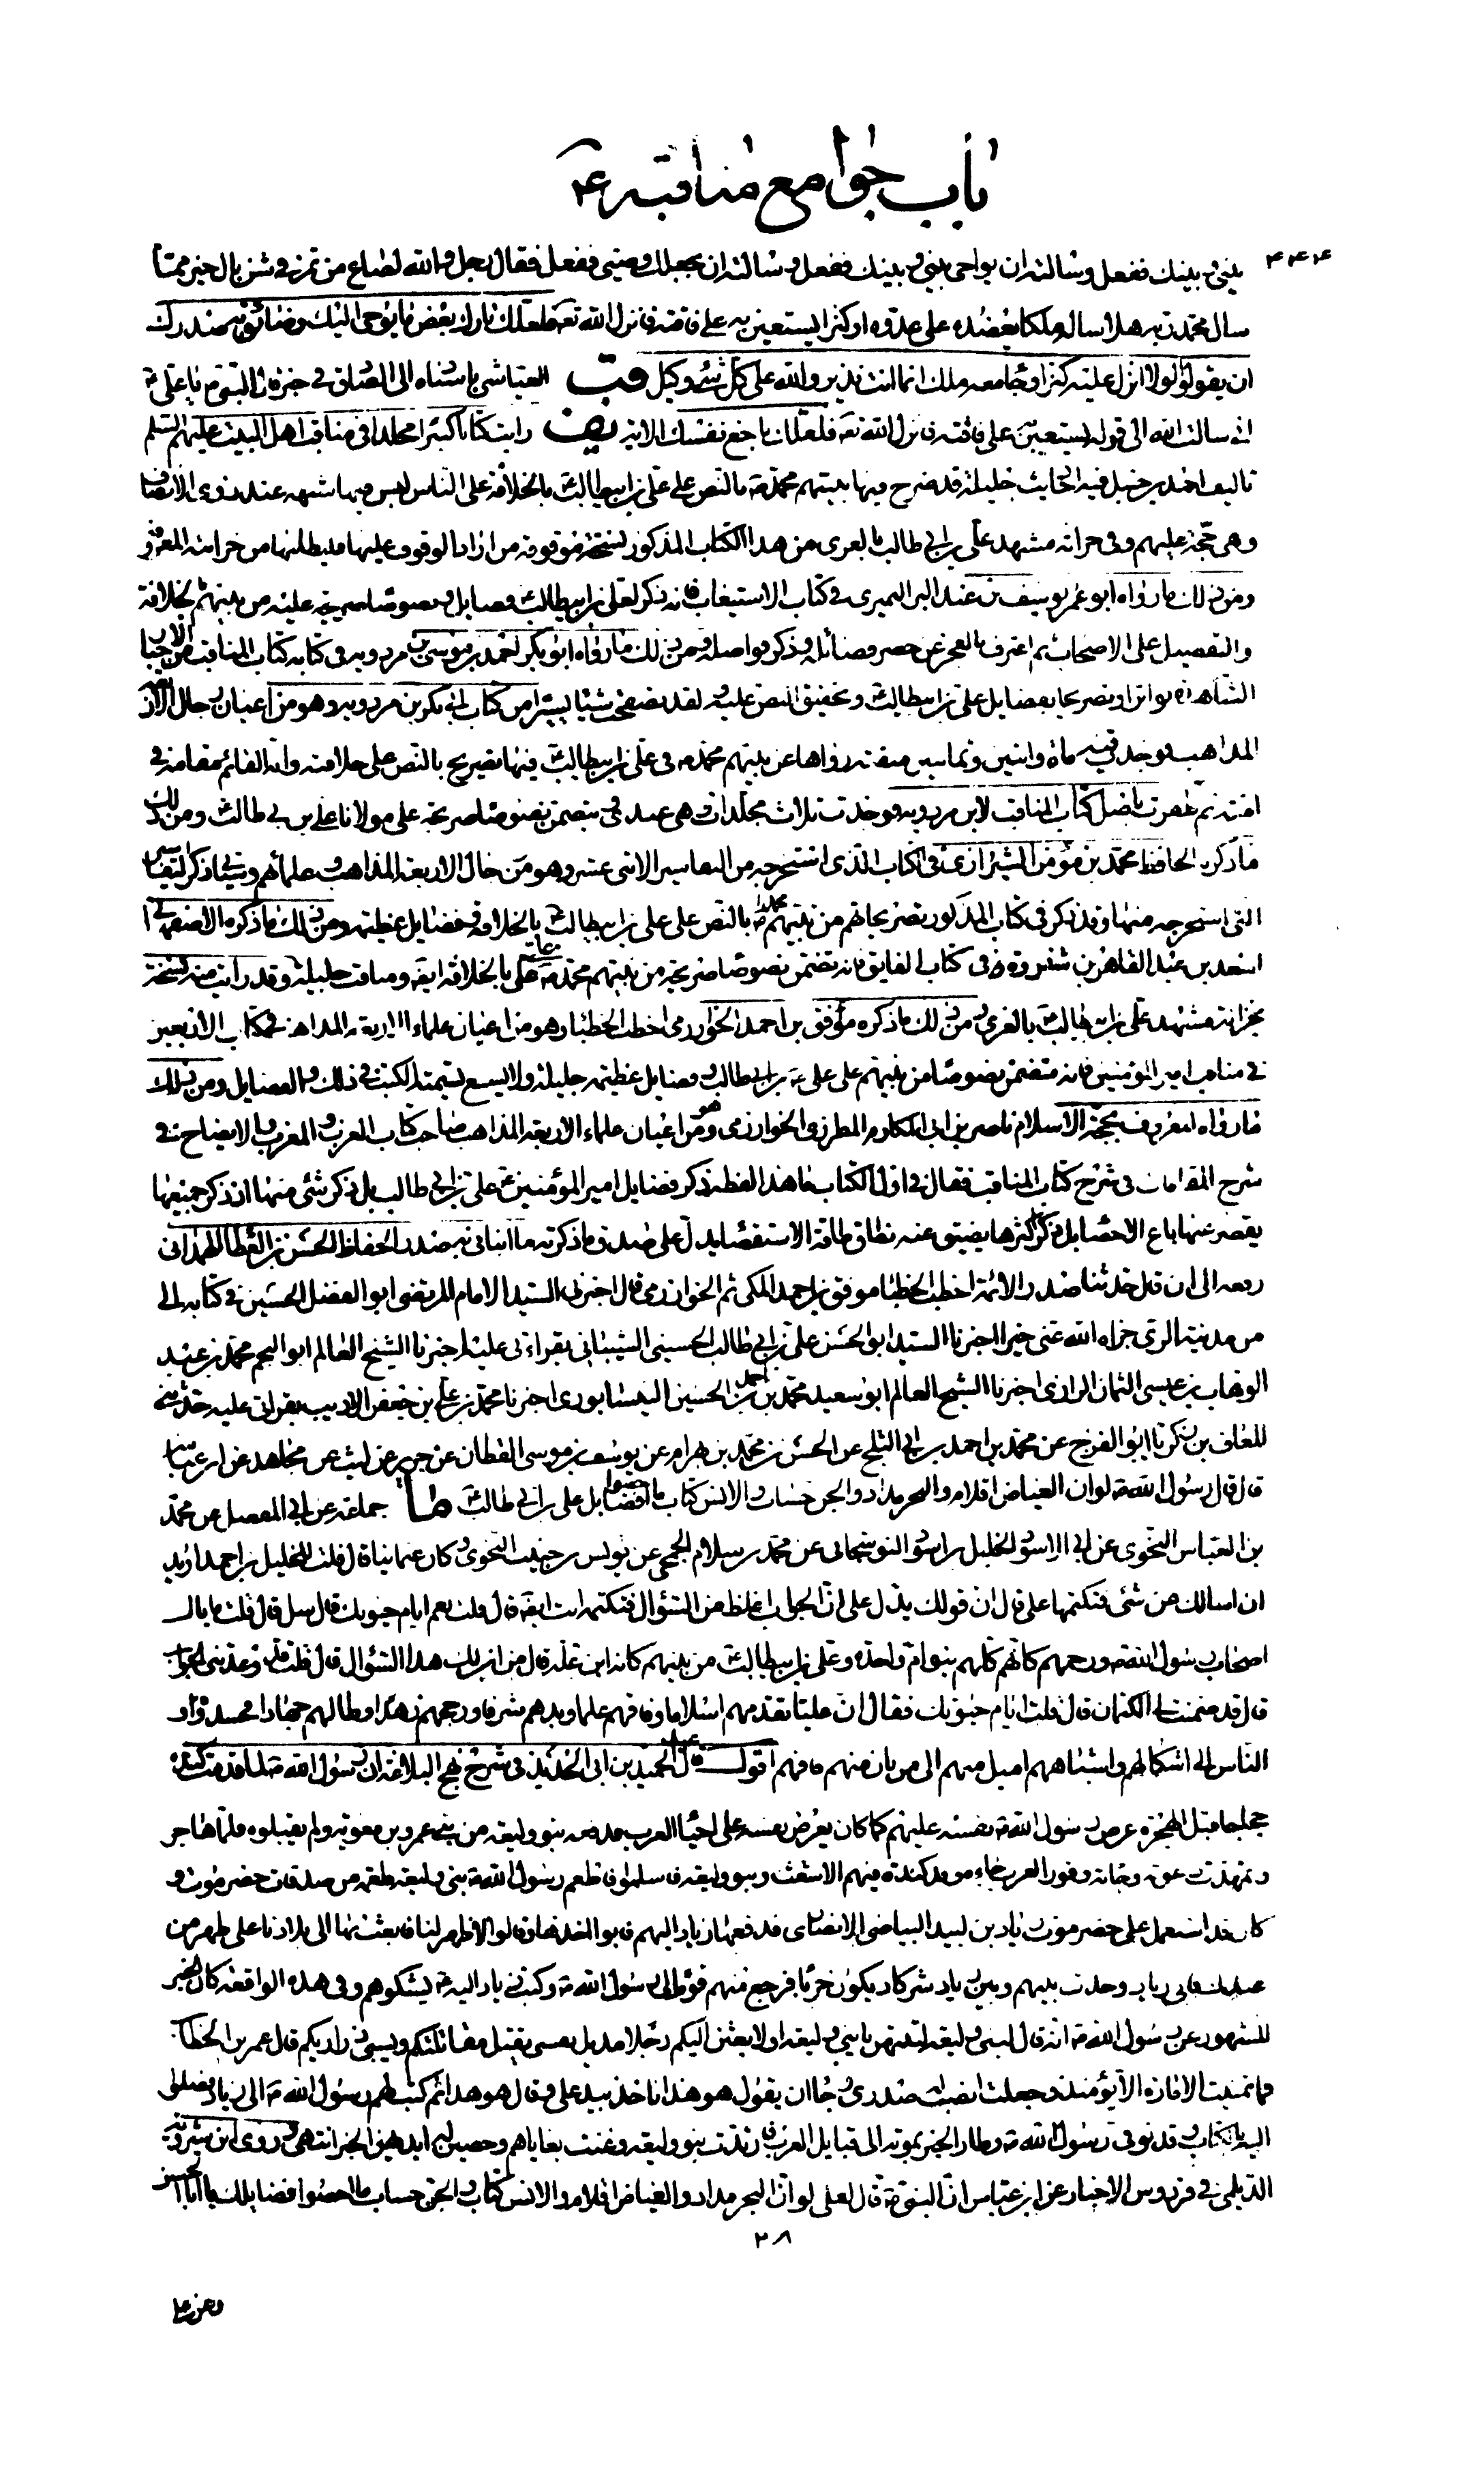 باب جوامع مناقبه ع
۴۴۴
بيني وبينك ففعل وسالته ان يواخي بيني وبينك ففعل وسالته ان يجعلك وصيي ففعل فقال رجل والله لصاع من تمر في شن بال خير مما
سال محمد ربه هلا ساله ملكا يعضده على عدوه او كنزا يستعين به على فاقته فانزل الله تعه فلعلك تارك بعض ما يوحى اليك وضائق به صدرك
ان يقولوا لولا انزل عليه كنز او جاء معه ملك انما انت نذير والله على كل شئ وكيل قب العياشي باسناده الى الصادق في خبر قال النبي ص يا علي
اني سالت الله الى قوله يستعين به على فاقته فانزل الله تعه فلعلك باخع نفسك الاية يف رايت كتابا كبيرا مجلدا في مناقب اهل البيت عليهم السلم
تاليف احمد بن حنبل فيه احاديث جليلة قد صرح فيها نبيهم محمد ص بالنص على علي بن ابيطالب بالخلافة على الناس ليس فيها شبهة عند ذوي الانصاف
وهي حجة عليهم وفي خزانة مشهد علي بن ابي طالب بالغري من هذا الكتاب المذكور نسخة موقوفة من اراد الوقوف عليها فليطلبها من خزانته المعروفة
ومن ذلك ما رواه ابو عمر يوسف بن عبد البر النميري في كتاب الاستيعاب فانه ذكر لعلي بن ابيطالب فضايل ونصوصا صريحة عليه من نبيهم بالخلافة
والتفضيل على الاصحاب ثم اعترف بالعجز عن حصر فضائله وذكر فواضله ومن ذلك ما رواه ابو بكر احمد بن موسى بن مردويه في كتابه كتاب المناقب من الاخبار
الشاهدة تواترا وتصريحا بفضايل علي بن ابيطالب وتحقيق النص عليه لقد تصفحت شيئا يسيرا من كتاب ابي بكر بن مردويه وهو من اعيان رجال الاربعة
المذاهب فوجدت فيه مائة واثنين وثمانين منقبة رواها عن نبيهم محمد ص في علي بن ابيطالب فيها تصريح بالنص على خلافته وانه القائم مقامه في
امته ثم ظفرت باصل كتاب المناقب لابن مردويه فوجدت ثلاث مجلدات وهي عندي تتضمن نصوصا صريحة على مولانا علي بن ابي طالب ومن ذلك
ما ذكره الحافظ محمد بن مؤمن الشيرازي في الكتاب الذي استخرجه من التفاسير الاثنى عشر وهو من رجال الاربعة المذاهب وعلمائهم وسياتي ذكر التفاسير
التي استخرجه منها وقد ذكر في كتاب المذكور تصريحاتهم من نبيهم محمد ص بالنص على علي بن ابيطالب بالخلافة وفضايل عظيمة ومن ذلك ما ذكره الاصفهاني
اسعد بن عبد القاهر بن شفروه في كتاب الفايق فانه يتضمن نصوصا صريحة من نبيهم محمد ص على علي بالخلافة ايضه ومناقب جليلة وقد رايت منه نسخة
بخزانة مشهد علي بن ابيطالب بالغري ومن ذلك ما ذكره موفق بن احمد الخوارزمي اخطب الخطباء وهو من اعيان علماء الاربعة المذاهب في كتاب الاربعين
في مناقب امير المؤمنين فانه متضمن نصوصا من نبيهم على علي بن ابي طالب وفضايل عظيمة جليلة ولا يسع تسمية الكتب في ذلك والفضايل ومن ذلك
ما رواه المعروف بحجة الاسلام ناصر بن ابي المكارم المطرزي الخوارزمي وهو من اعيان علماء الاربعة المذاهب صاحب كتاب المعرب والمغرب والايضاح في
شرح المقامات في شرح كتاب المناقب فقال في اول الكتاب ما هذا لفظه ذكر فضايل امير المؤمنين علي بن ابي طالب بل ذكر شئ منها اذ ذكر جميعها
يقصر عنها باع الاحصاء بل ذكر اكثرها يضيق عنه نطاق طاقة الاستقصاء يدل على صدق ما ذكرته ما انبانى به صدر الحفاظ الحسن بن العطار الهمداني
رفعه الى ان قال حدثنا صدر الائمة اخطب الخطباء موفق بن احمد المكي ثم الخوارزمي قال اخبرني السيد الامام المرتضى ابو الفضل الحسين في كتابه الي
من مدينة الري جزاه الله عني خيرا اخبرنا السيد ابو الحسن علي بن ابي طالب الحسيني الشيباني بقرائتي عليه اخبرنا الشيخ العالم ابو النجم محمد بن عبد
الوهاب بن عيسى السمان الرازي اخبرنا الشيخ العالم ابو سعيد محمد بن احمد بن الحسين النيسابوري اخبرنا محمد بن علي بن جعفر الاديب بقرائتي عليه حدثني
المعافي بن زكريا ابو الفرج عن محمد بن احمد بن ابي الثلج عن الحسن بن محمد بن بهرام عن يوسف بن موسى القطان عن جرير عن ليث عن مجاهد عن ابن عباس
قال قال رسول الله ص لو ان الغياض اقلام والبحر مداد والجن حساب والانس كتاب ما احصوا فضايل علي بن ابي طالب ما جماعة عن ابي المفضل عن محمد
بن العباس النحوي عن ابي الاسود الخليل بن اسود النوشجاني عن محمد بن سلام الجمحي عن يونس بن حبيب النحوي وكان عثمانيا قال قلت للخليل بن احمد اريد
ان اسالك عن شئ فتكتمها علي قال ان قولك يدل على ان الجواب اغلظ من السؤال فتكتمه انت ايضه قال قلت نعم ايام حيوتك قال سل قال قلت ما بال
اصحاب رسول الله ص ورحمهم كانهم كلهم بنو ام واحدة وعلي بن ابيطالب من بينهم كانه ابن علة قال من اين لك هذا السؤال قال قلت قد وعدتني الجواب
قال قد ضمنت لي الكتمان قال قلت ايام حيوتك فقال ان عليا تقدمهم اسلاما وفاقهم علما وبذهم شرفا ورجحهم زهدا وطالهم جهادا فحسدوه و
الناس الى اشكالهم واشباههم اميل منهم الى من بان منهم فافهم اقول قال عبد الحميد بن ابي الحديد في شرح نهج البلاغة ان رسول الله ص لما قدمت كندة
حجاجا قبل الهجرة عرض رسول الله ص نفسه عليهم كما كان يعرض نفسه على احياء العرب فدفعه بنو وليعة من بني عمرو بن معوية ولم يقبلوه فلما هاجر
وتمهدت دعوته وجائته وفود العرب جاءه وفد كندة فيهم الاشعث وبنو وليعة فاسلموا فاطعم رسول الله ص بني وليعة طعمة من صدقات حضرموت و
كان قد استعمل على حضرموت زياد بن لبيد البياضي الانصاري فدفعها زياد اليهم فابوا اخذها وقالوا لا ظهر لنا فابعث بها الى بلادنا على ظهر من
عندك فابى زياد وحدث بينهم وبين زياد شر كاد يكون حربا فرجع منهم قوم الى رسول الله ص وكتب زياد اليه يشكوهم وفي هذه الواقعة كان الخبر
المشهور عن رسول الله ص انه قال لبني وليعة لتنتهن يا بني وليعة او لابعثن اليكم رجلا عديل نفسي يقتل مقاتلتكم ويسبي ذراريكم قال عمر بن الخطاب
فما تمنيت الامارة الا يومئذ وجعلت انصب له صدري رجاء ان يقول هو هذا فاخذ بيد علي وقال هو هذا ثم كتب لهم رسول الله ص الى زياد فوصلوا
اليه بالكتاب وقد توفي رسول الله ص وطار الخبر بموته الى قبايل العرب فارتدت بنو وليعة وغنت بغاياهم وخضبن له ايديهن الخبر انتهى وروى ابن شيرويه
الديلمي في فردوس الاخبار عن ابن عباس ان النبي ص قال لعلي لو ان البحر مداد والغياض اقلام والانس كتاب والجن حساب ما احصوا فضايلك يا ابا الحسن
۳۸
وعن علي